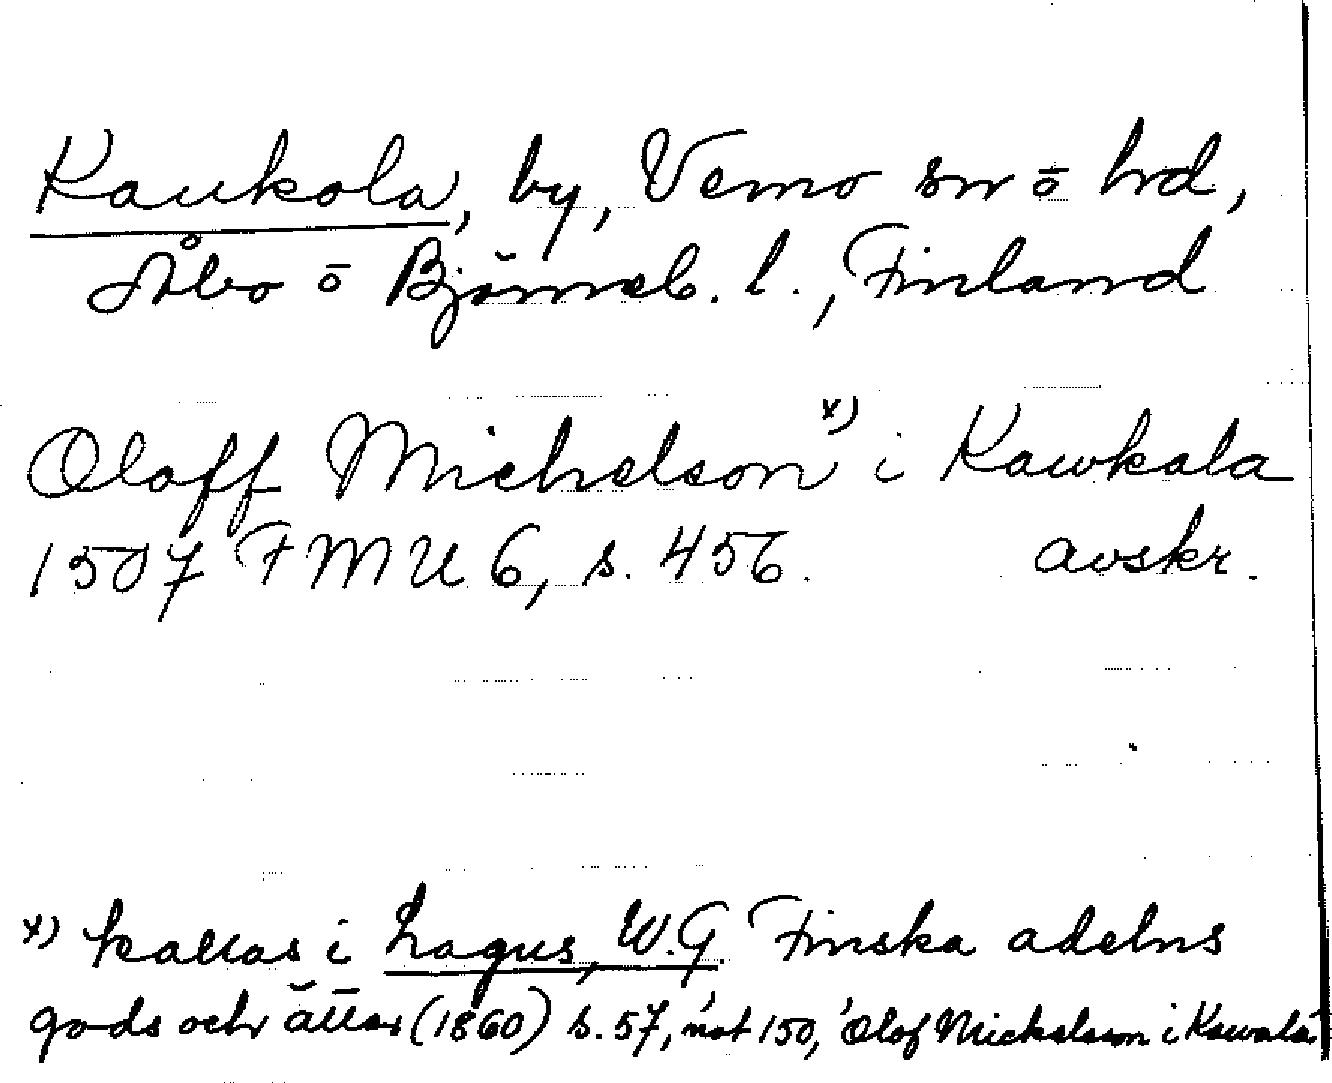 Kaukola, by, Vemo sn o hd,
Åbo o Björneb. l., Finland
Oloff Michelson x) i Kawkala
1507 FMU 6, s. 456. avskr.
x) kallas i Lagus, W.G. Finska adelns
gods och ätter (1860) s. 57, not 150, Olof Mickelsson i Kowala